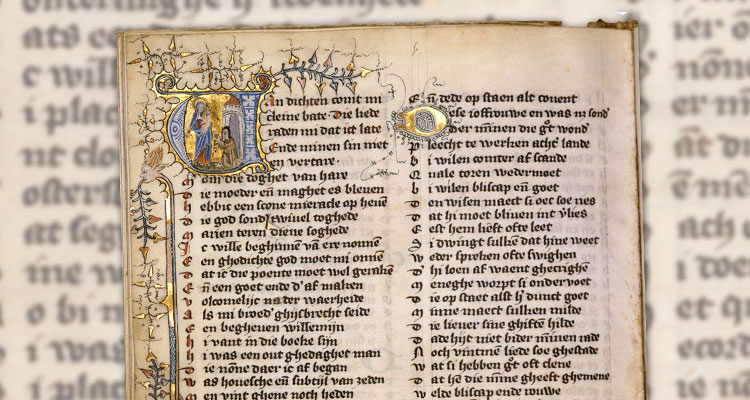 Van dichten comt mi
cleine bate. Die liede
raden mi dat ict late
Ende minen sin niet
en vertare.
Om die doghet van hare
Die moeder eñ maghet es bleuen
Hebbic een scone mieracle op heuen
Die god sond' twiuel toghede
Marien teren diene soghede
Ic wille beghinnen vā ere nonnen
Een ghedichte god moet mi onnen
Dat ic die poente moet wel geraken
Eñ een goet ende d'af maken
Volcomelijc na der waerheide
Als mi broed' ghijsbrecht seide
Een begheuen willemijn
Hi vant in die boeke sijn
Hi was een out ghedaghet man
Die nonne daer ic af began
Was houesche eñ subtijl van zeden
Men vint ghene noch heden
Eñ dede op staen alt couent
Dese ioffrouwe en was nz sond'
Der mīnen die gͦt wond'
Pleecht te werken achͭ lande
Bi wilen comter af scande
Quale toren wedermoet
Bi wilen bliscap eñ goet
Den wisen maect si oec soe ries
Dat hi moet bliuen int v'lies
Eest hem lieft ofte leet
Si dwingt sulken dat hine weet
Weder spreken ofte swighen
Daer hi loen af waent ghecrighen
Meneghe worpt si ondervoet
Die op staet alst hꝰ dunct goet
Minne maect sulken milde
Die lieuer sine ghiften hilde
Dade hijt niet bider mīnen rade
Noch vintmē liede soe ghestade
Wat si hebben gͦt oft clene
Dat hē die mīne gheeft ghemene
Welde bliscap ende rouwe